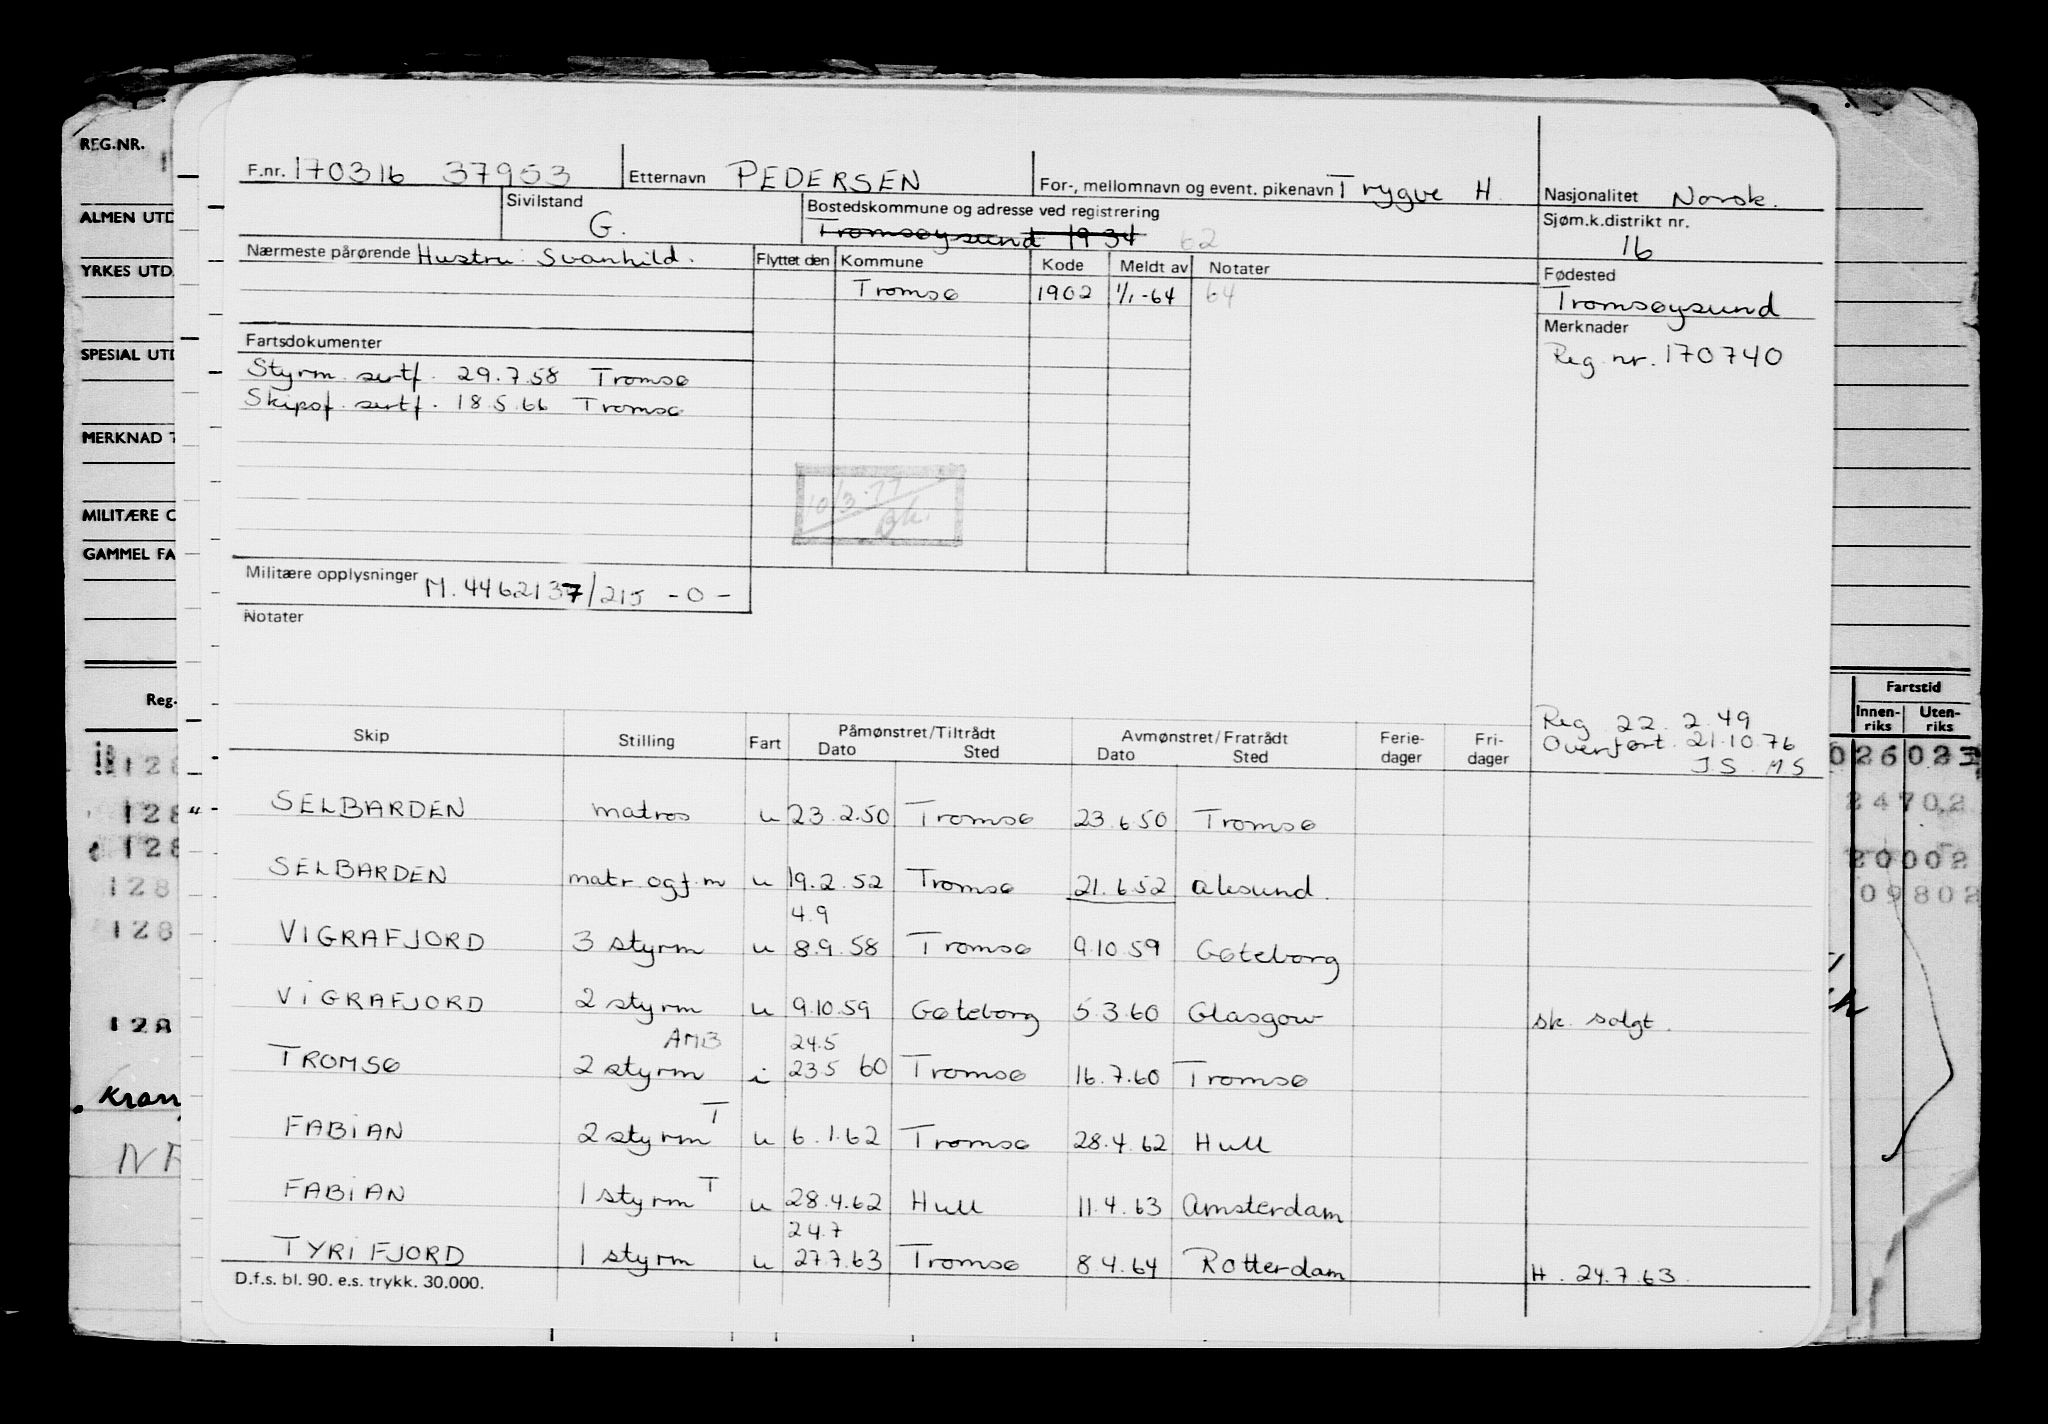 REG.NR.
ALMEN UTD
YRKES UTD.
SPESIAL UTD
MERKNAD T
MILITÆRE O
GAMMEL FA
Reg.
F.nr. 170316 37953 Etternavn PEDERSEN For-, mellomnavn og event. pikenavn Trygve H. Nasjonalitet Norsk.
Sivilstand G. Bostedskommune og adresse ved registrering Tromsøysund 1934 62 Sjøm.k.distrikt nr. 16
Nærmeste pårørende Hustru: Svanhild. Flyttet den Kommune Kode Meldt av Notater Fødested
Tromsø 1902 1/1-64 64 Tromsøysund
Fartsdokumenter Merknader
Styrm. sertf. 29.7.58 Tromsø Reg. nr. 170740
Skipsf. sertf. 18.5.66 Tromsø
10/3.77
Bk.
Militære opplysninger M. 4462137/215 -0-
Notater
Reg 22. 2. 49
Overført. 21.10.76
J.S. MS
Skip Stilling Fart Påmønstret/Tiltrådt Dato Sted Avmønstret/Fratrådt Dato Sted Ferie-dager Fri-dager
SELBARDEN matros u 23.2.50 Tromsø 23.6.50 Tromsø
SELBARDEN matr. og f.m u 19.2.52 Tromsø 21.6.52 Ålesund.
4.9
VIGRAFJORD 3 styrm u 8.9.58 Tromsø 9.10.59 Gøteborg
VIGRAFJORD 2 styrm u 9.10.59 Gøteborg 5.3.60 Glasgow sk. solgt.
AMB 24.5
TROMSØ 2 styrm i 23.5 60 Tromsø 16.7.60 Tromsø
FABIAN 2 styrm T u 6.1.62 Tromsø 28.4.62 Hull
FABIAN 1 styrm T u 28.4.62 Hull 11.4.63 Amsterdam
24.7
TYRIFJORD 1 styrm u 27.7.63 Tromsø 8.4.64 Rotterdam H. 24.7.63.
D.f.s. bl. 90. e.s. trykk. 30.000.
Fartstid
Innen-riks Uten-riks
128
128
128
128
128
128
02602
24702
20002
09802